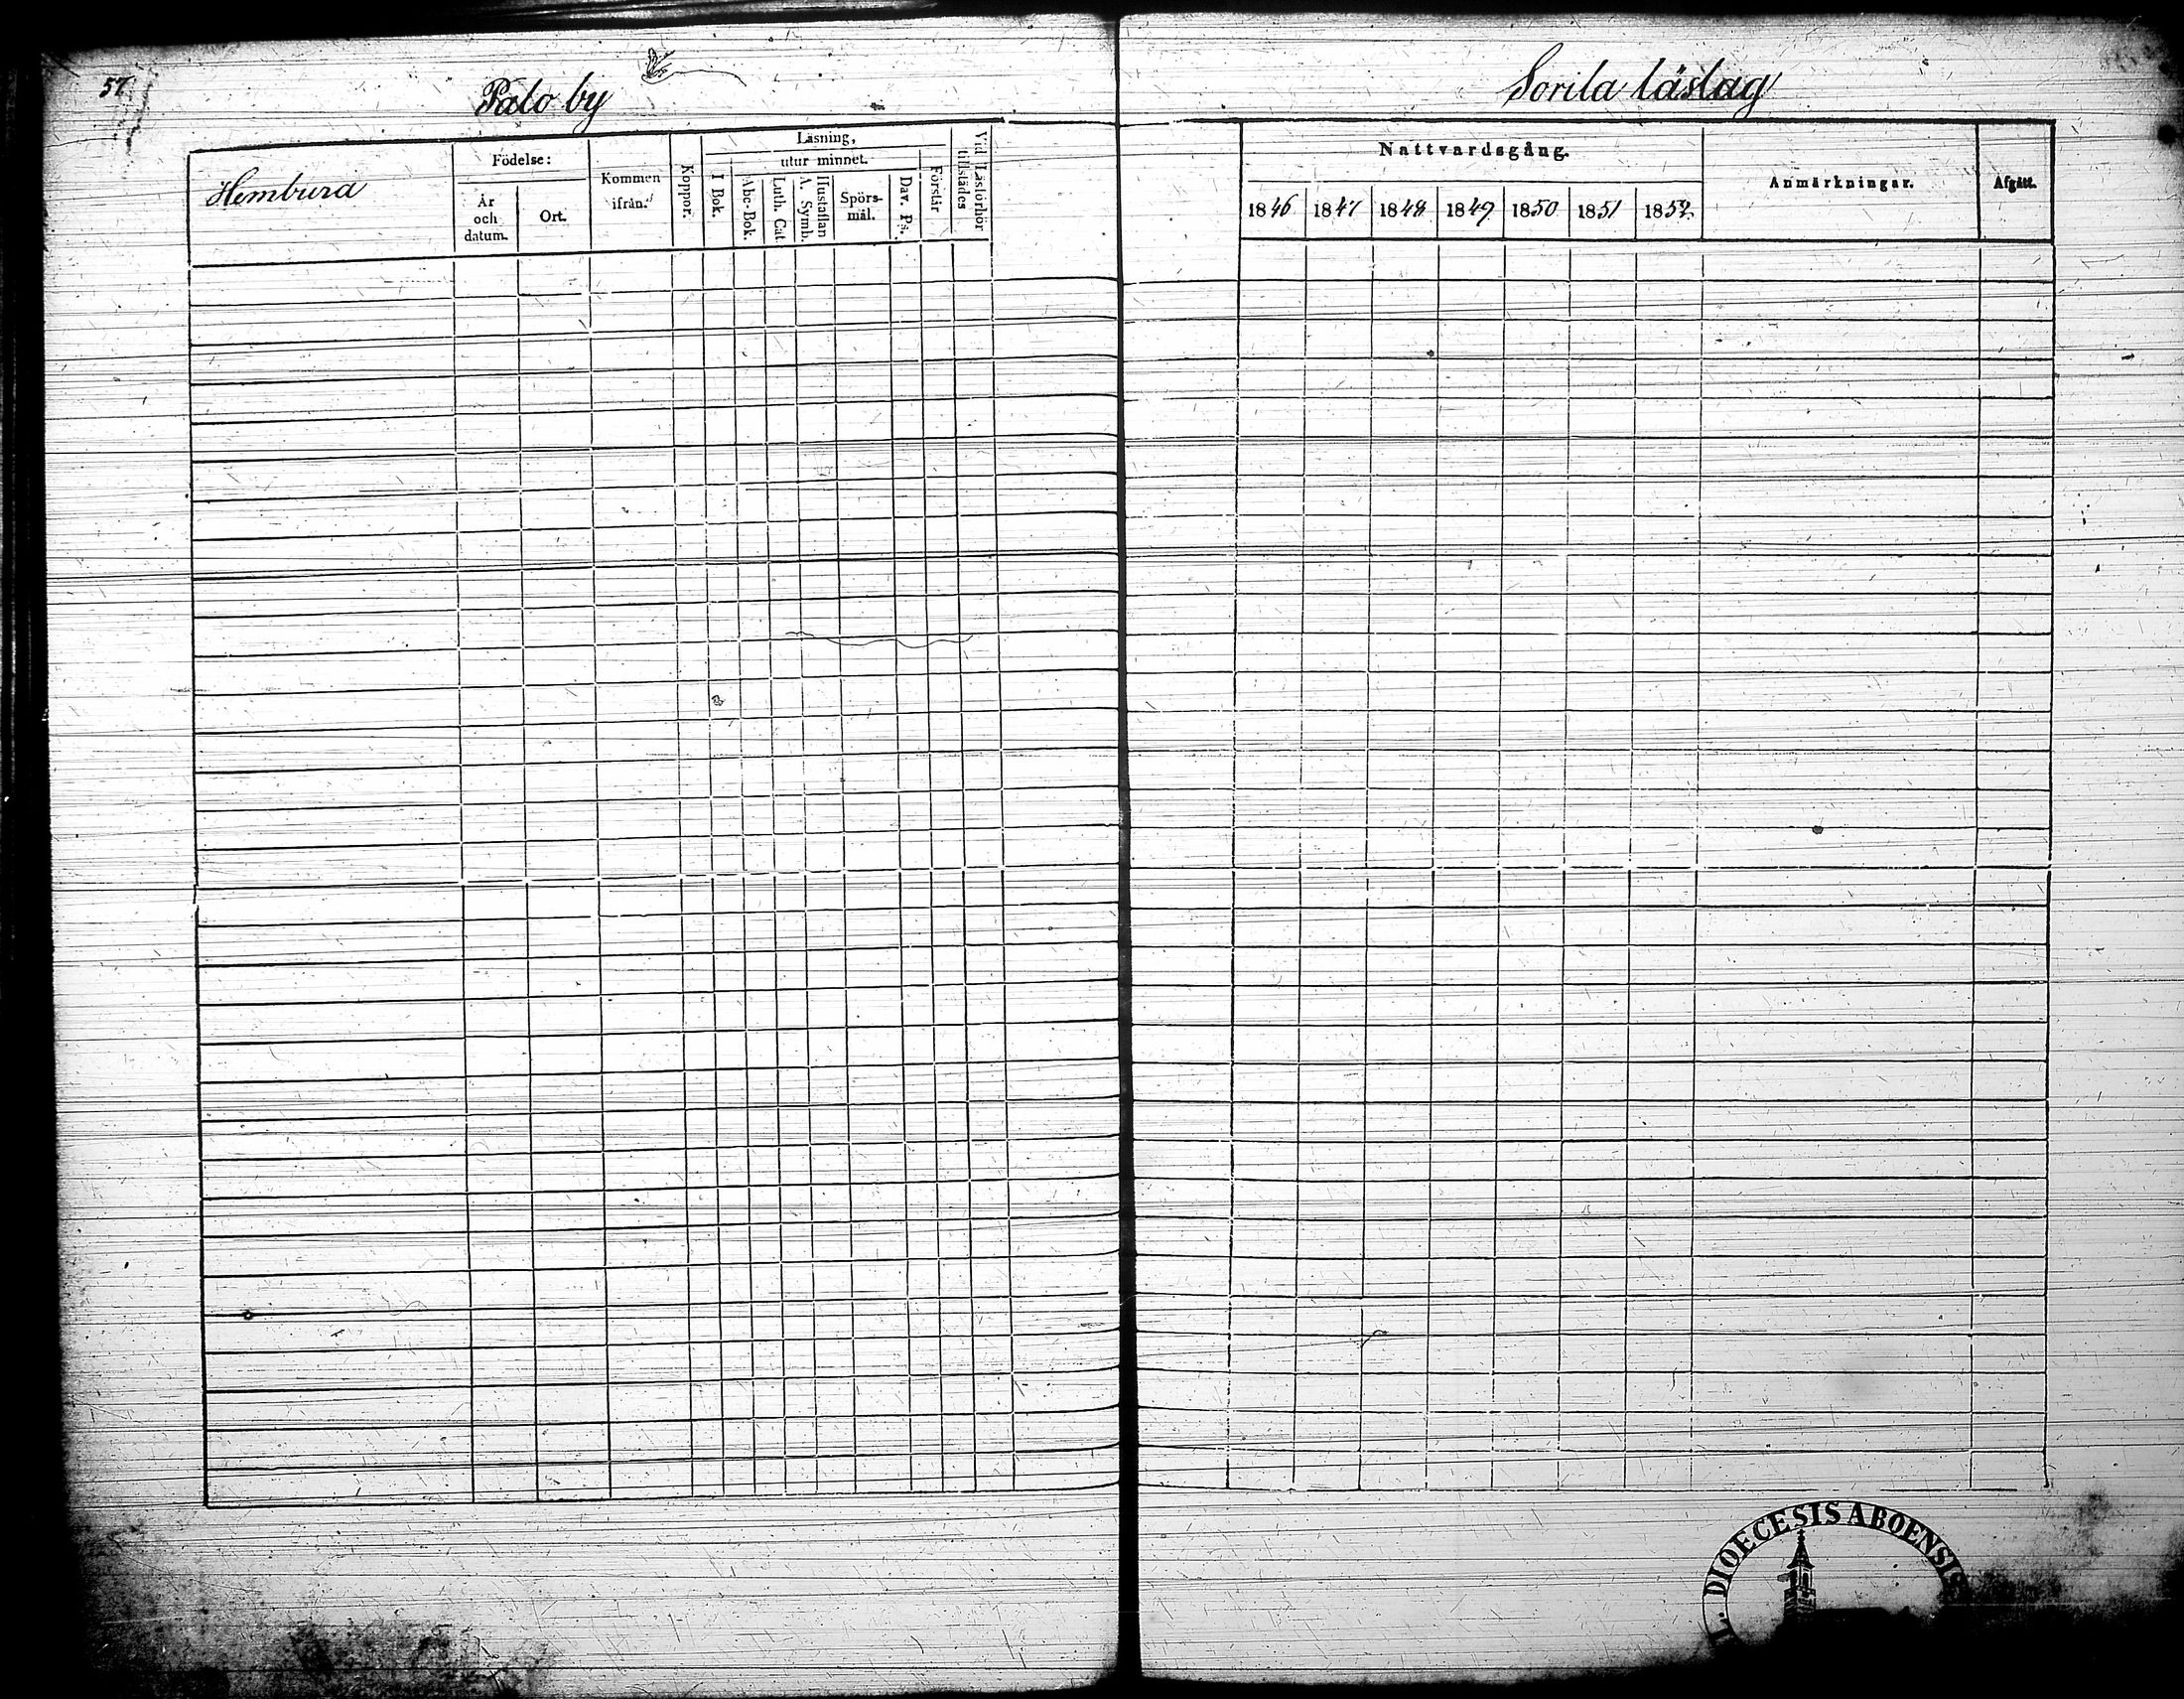 57
Palo by
Sorila läslag
Hembura
Födelse:
År
och
datum.
Ort.
Kommen
ifrån.
Koppor.
Läsning,
utur minnet.
I Bok.
Abc-Bok.
Luth. Cat.
Hustaflan
A. Symb.
Spörs-
mål.
Dav. Ps.
Förstår
Vid Läsförhör
tillstädes
Nattvardsgång.
1846 1847 1848 1849 1850 1851 1852
Anmärkningar.
Afgått.
L. DIOECESIS ABOENSIS